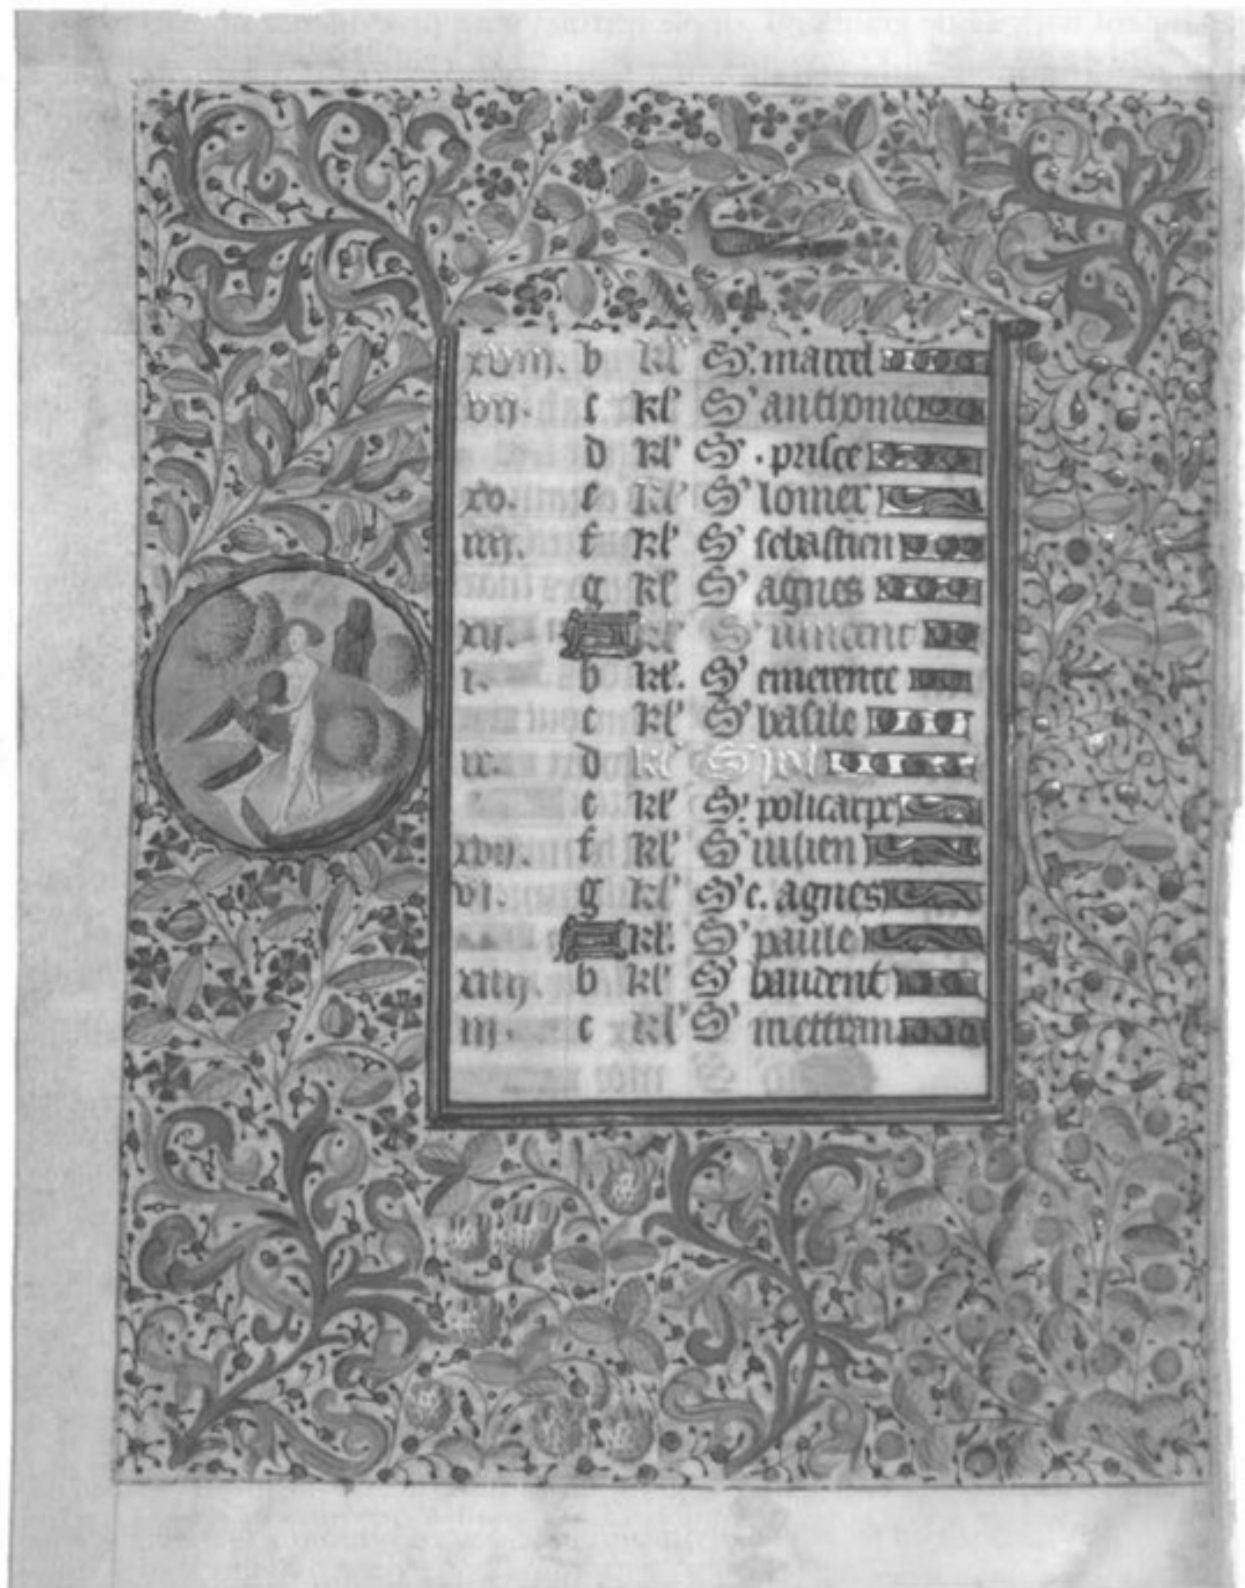 xviij. b kl' S'. marcel
vij. c kl' S' anthonie
d kl' S' . prisce
xv. e kl' S' lomer
iiij. f kl' S' sebastien
g kl' S' agnes
xij. A kl' S' vincent
i. b kl'. S' emerence
c kl' S' basile
ix. d kl' S' pol
e kl' S' policarpe
xvij. f kl' S' iulien
vi. g kl' S' c. agnes
A kl'. S' paule
xiiij. b kl' S' baudent
iij. c kl' S' mettran